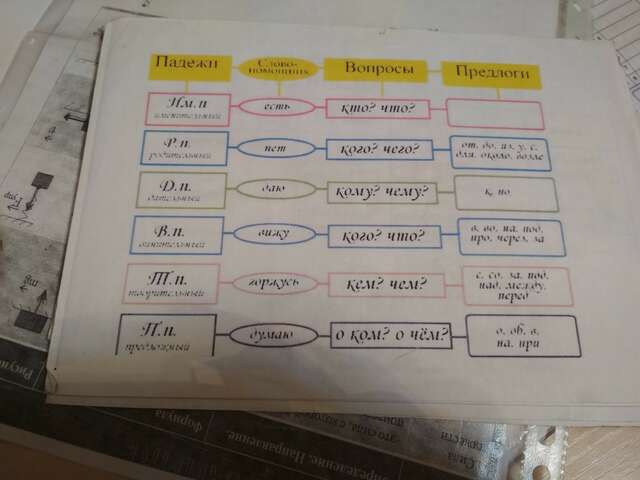 Падежи
Слово-
помощник
Вопросы
Предлоги
Им. п
именительный
есть
кто? что?
Р. п.
родительный
нет
кого? чего?
от, до, из, у, с,
для, около, возле
Д. п.
дательный
даю
кому? чему?
к, по
В. п.
винительный
вижу
кого? что?
в, во, на, под,
про, через, за
Т. п.
творительный
горжусь
кем? чем?
с, со, за, под,
над, между,
перед
П. п.
предложный
думаю
о ком? о чём?
о, об, в,
на, при
Fупр
mg
Рисуно
Формула
определение. Направление.
это сила, с которой
Сила